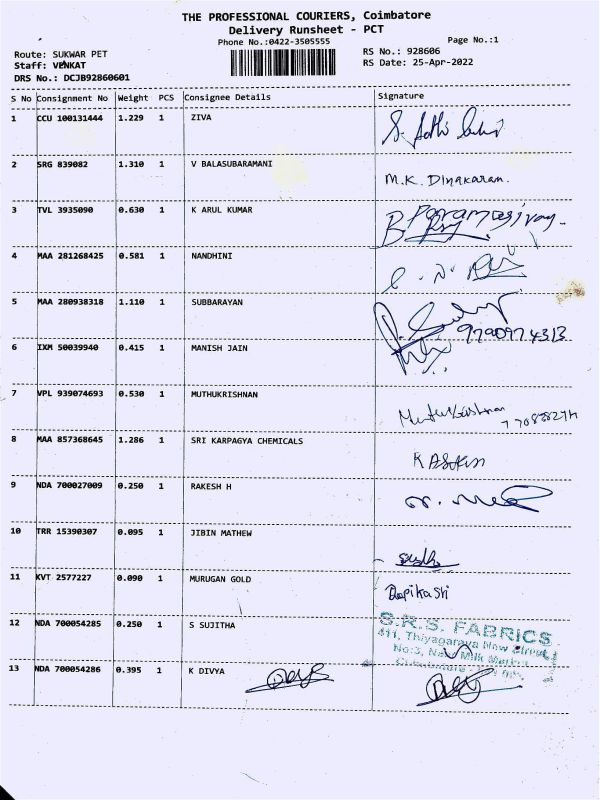 THE PROFESSIONAL COURIERS, Coimbatore
Delivery Runsheet - PCT
Phone No.:0422-3505555
Page No.:1
Route: SUKWAR PET
Staff: VENKAT
DRS No.: DCJB92860601
RS No.: 928606
RS Date: 25-Apr-2022
S No Consignment No Weight PCS Consignee Details Signature
1 CCU 100131444 1.229 1 ZIVA
2 SRG 839082 1.310 1 V BALASUBARAMANI M.K. Dinakaran.
3 TVL 3935090 0.630 1 K ARUL KUMAR
4 MAA 281268425 0.581 1 NANDHINI
5 MAA 280938318 1.110 1 SUBBARAYAN 9790974313
6 IXM 50039940 0.415 1 MANISH JAIN
7 VPL 939074693 0.530 1 MUTHUKRISHNAN Muthukrishnan
8 MAA 857368645 1.286 1 SRI KARPAGYA CHEMICALS
9 NDA 700027009 0.250 1 RAKESH H
10 TRR 15390307 0.095 1 JIBIN MATHEW
11 KVT 2577227 0.090 1 MURUGAN GOLD
12 NDA 700054285 0.250 1 S SUJITHA S.R.S. FABRICS
411, Thiyagaraya New Street
No:3, New Milk Market
13 NDA 700054286 0.395 1 K DIVYA